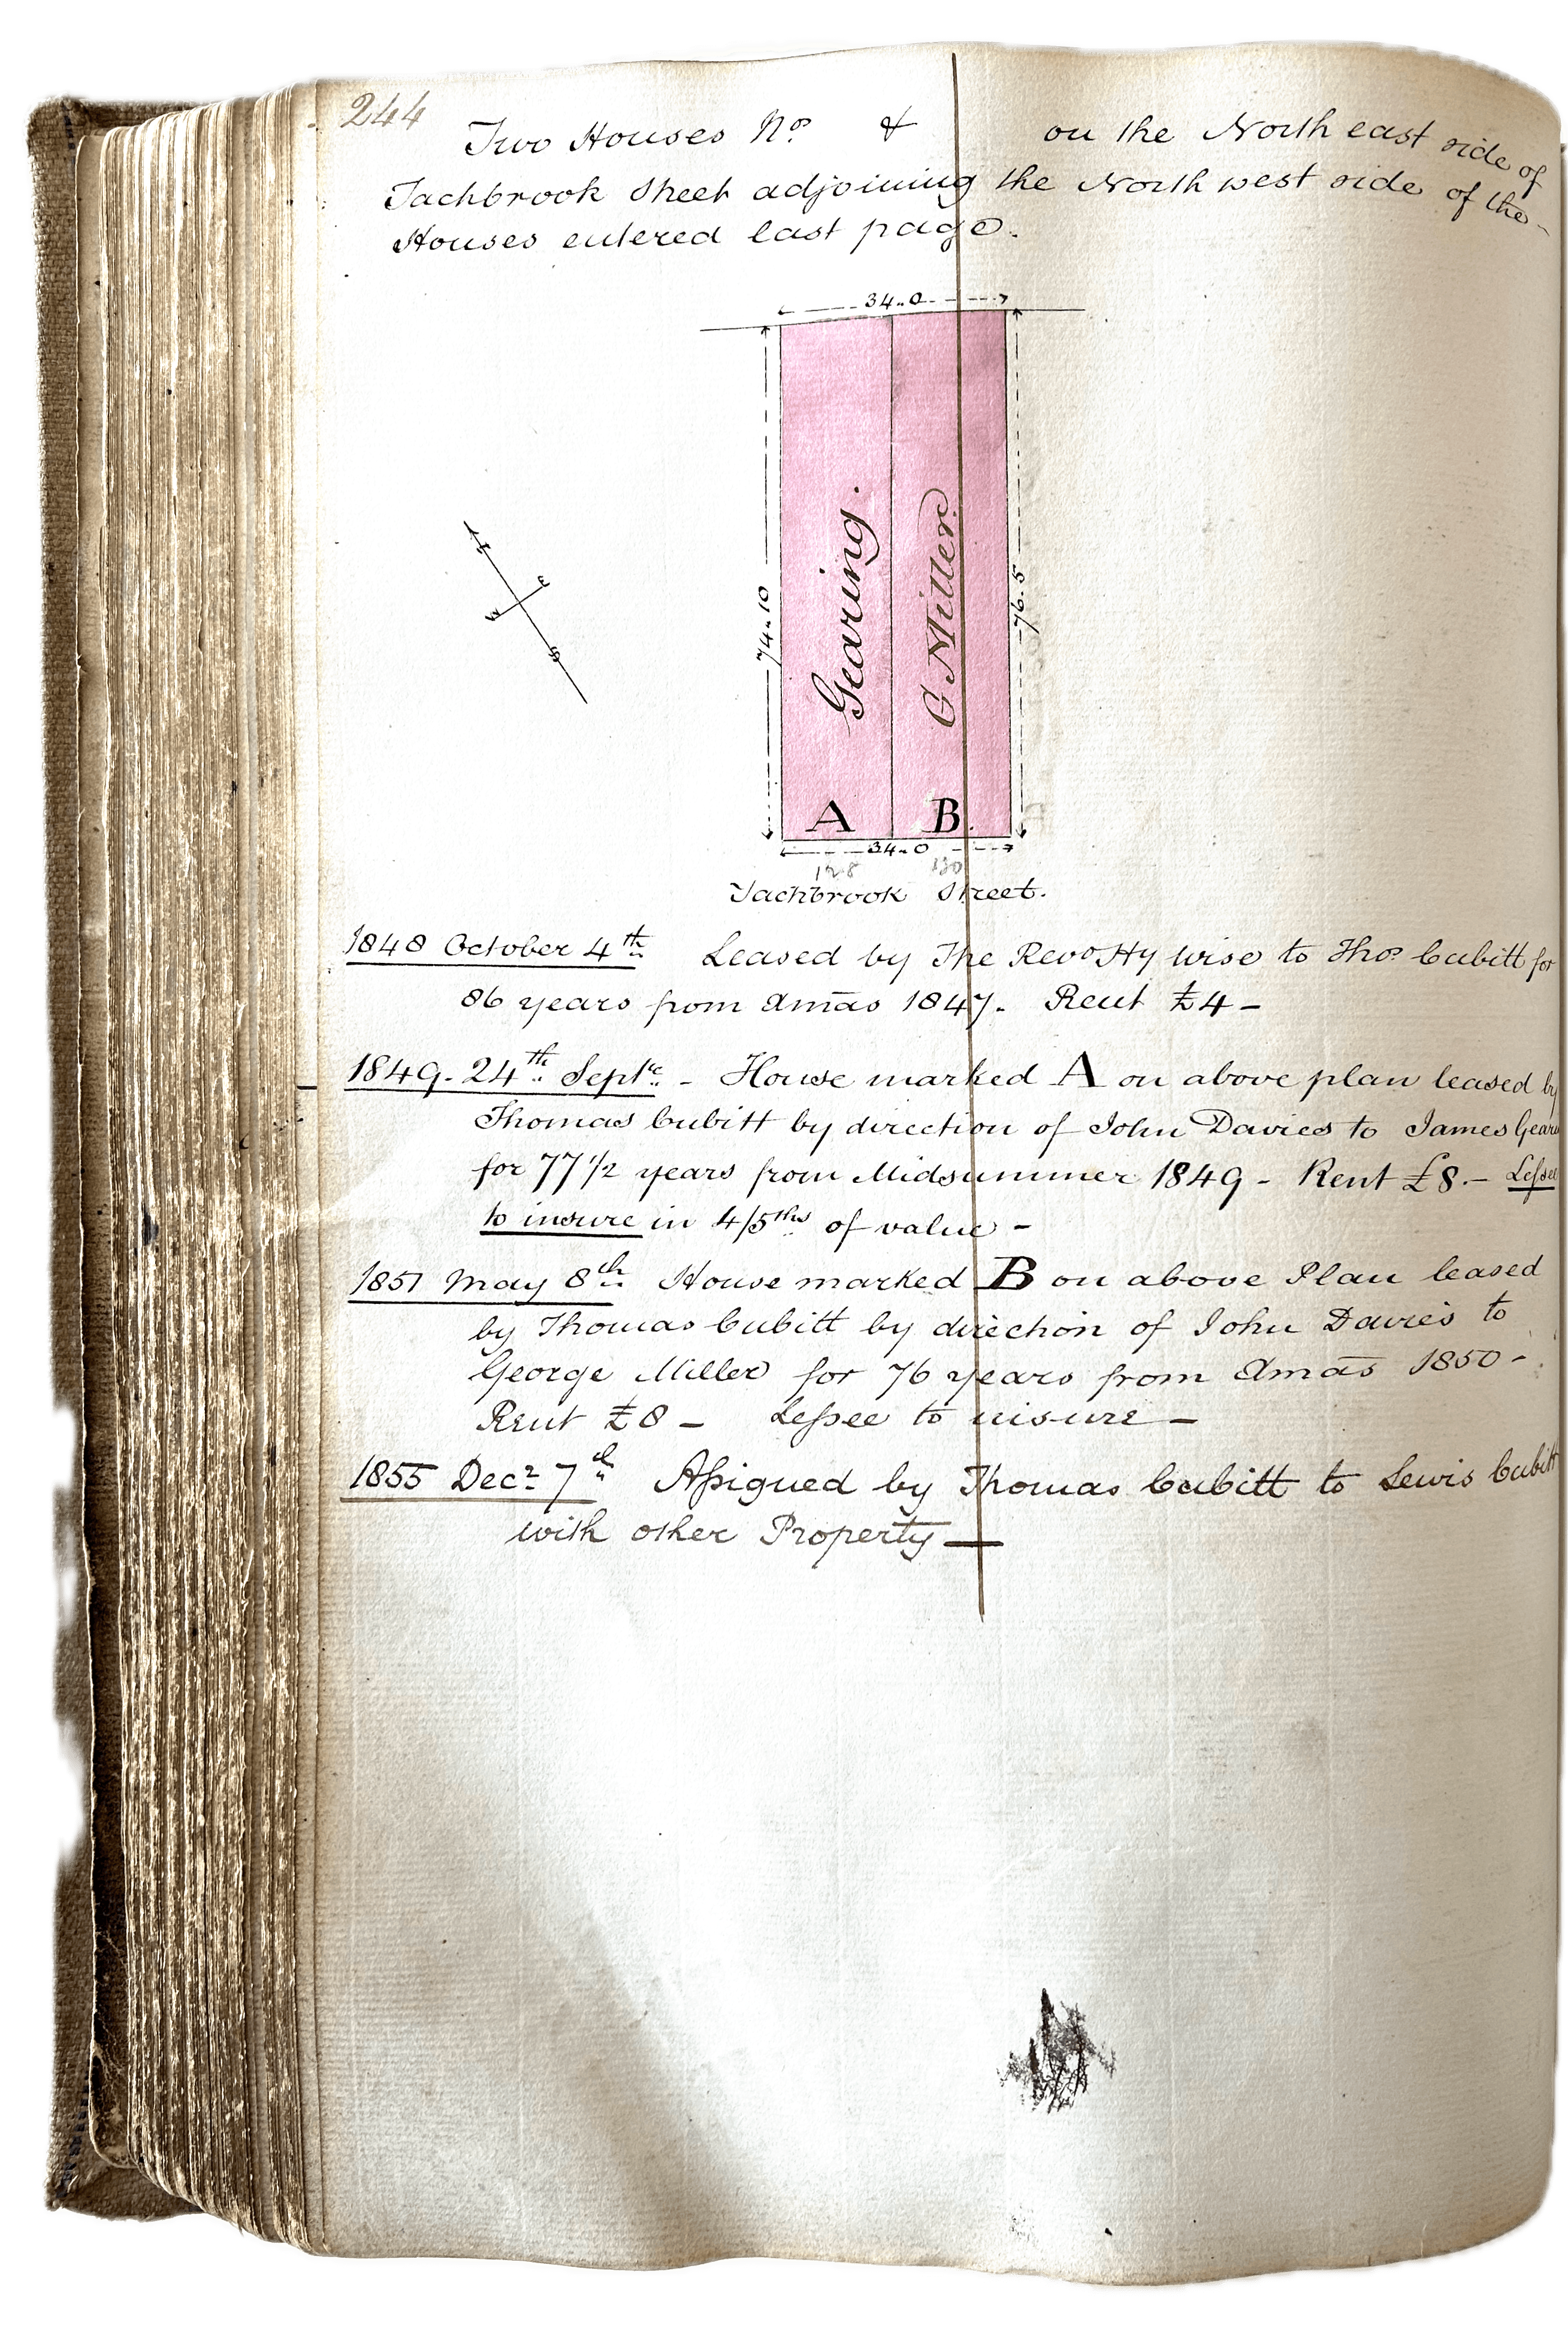 244
Two Houses Nos & on the North east side of
Tachbrook Street adjoining the North west side of the
Houses entered last page.
34..0
N
E
W
S
74..10
76..5
Gearing.
G Miller
A B
34..0
128 130
Tachbrook Street.
1848 October 4th Leased by The Revd Hy Wise to Thos Cubitt for
86 years from Xmas 1847. Rent £4 -
1849. 24th Septr. - House marked A on above plan leased by
Thomas Cubitt by direction of John Davies to James Gear
for 77 1/2 years from Midsummer 1849 - Rent £8. - Lessee
to insure in 4/5ths of value -
1851 May 8th House marked B on above Plan leased
by Thomas Cubitt by direction of John Davies to
George Miller for 76 years from Xmas 1850 -
Rent £8 - Lessee to insure -
1855 Decr 7th Assigned by Thomas Cubitt to Lewis Cubitt
with other Property —